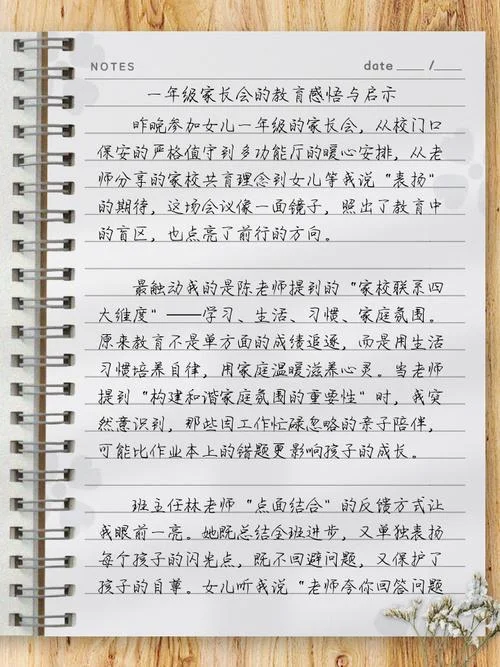 NOTES
date ____ /____
一年级家长会的教育感悟与启示
昨晚参加女儿一年级的家长会，从校门口
保安的严格值守到多功能厅的暖心安排，从老
师分享的家校共育理念到女儿等我说“表扬”
的期待，这场会议像一面镜子，照出了教育中
的盲区，也点亮了前行的方向。
最触动我的是陈老师提到的“家校联系四
大维度”——学习、生活、习惯、家庭氛围。
原来教育不是单方面的成绩追逐，而是用生活
习惯培养自律，用家庭温暖滋养心灵。当老师
提到“构建和谐家庭氛围的重要性”时，我突
然意识到，那些因工作忙碌忽略的亲子陪伴，
可能比作业本上的错题更影响孩子的成长。
班主任林老师“点面结合”的反馈方式让
我眼前一亮。她既总结全班进步，又单独表扬
每个孩子的闪光点，既不回避问题，又保护了
孩子的自尊。女儿听我说“老师夸你回答问题